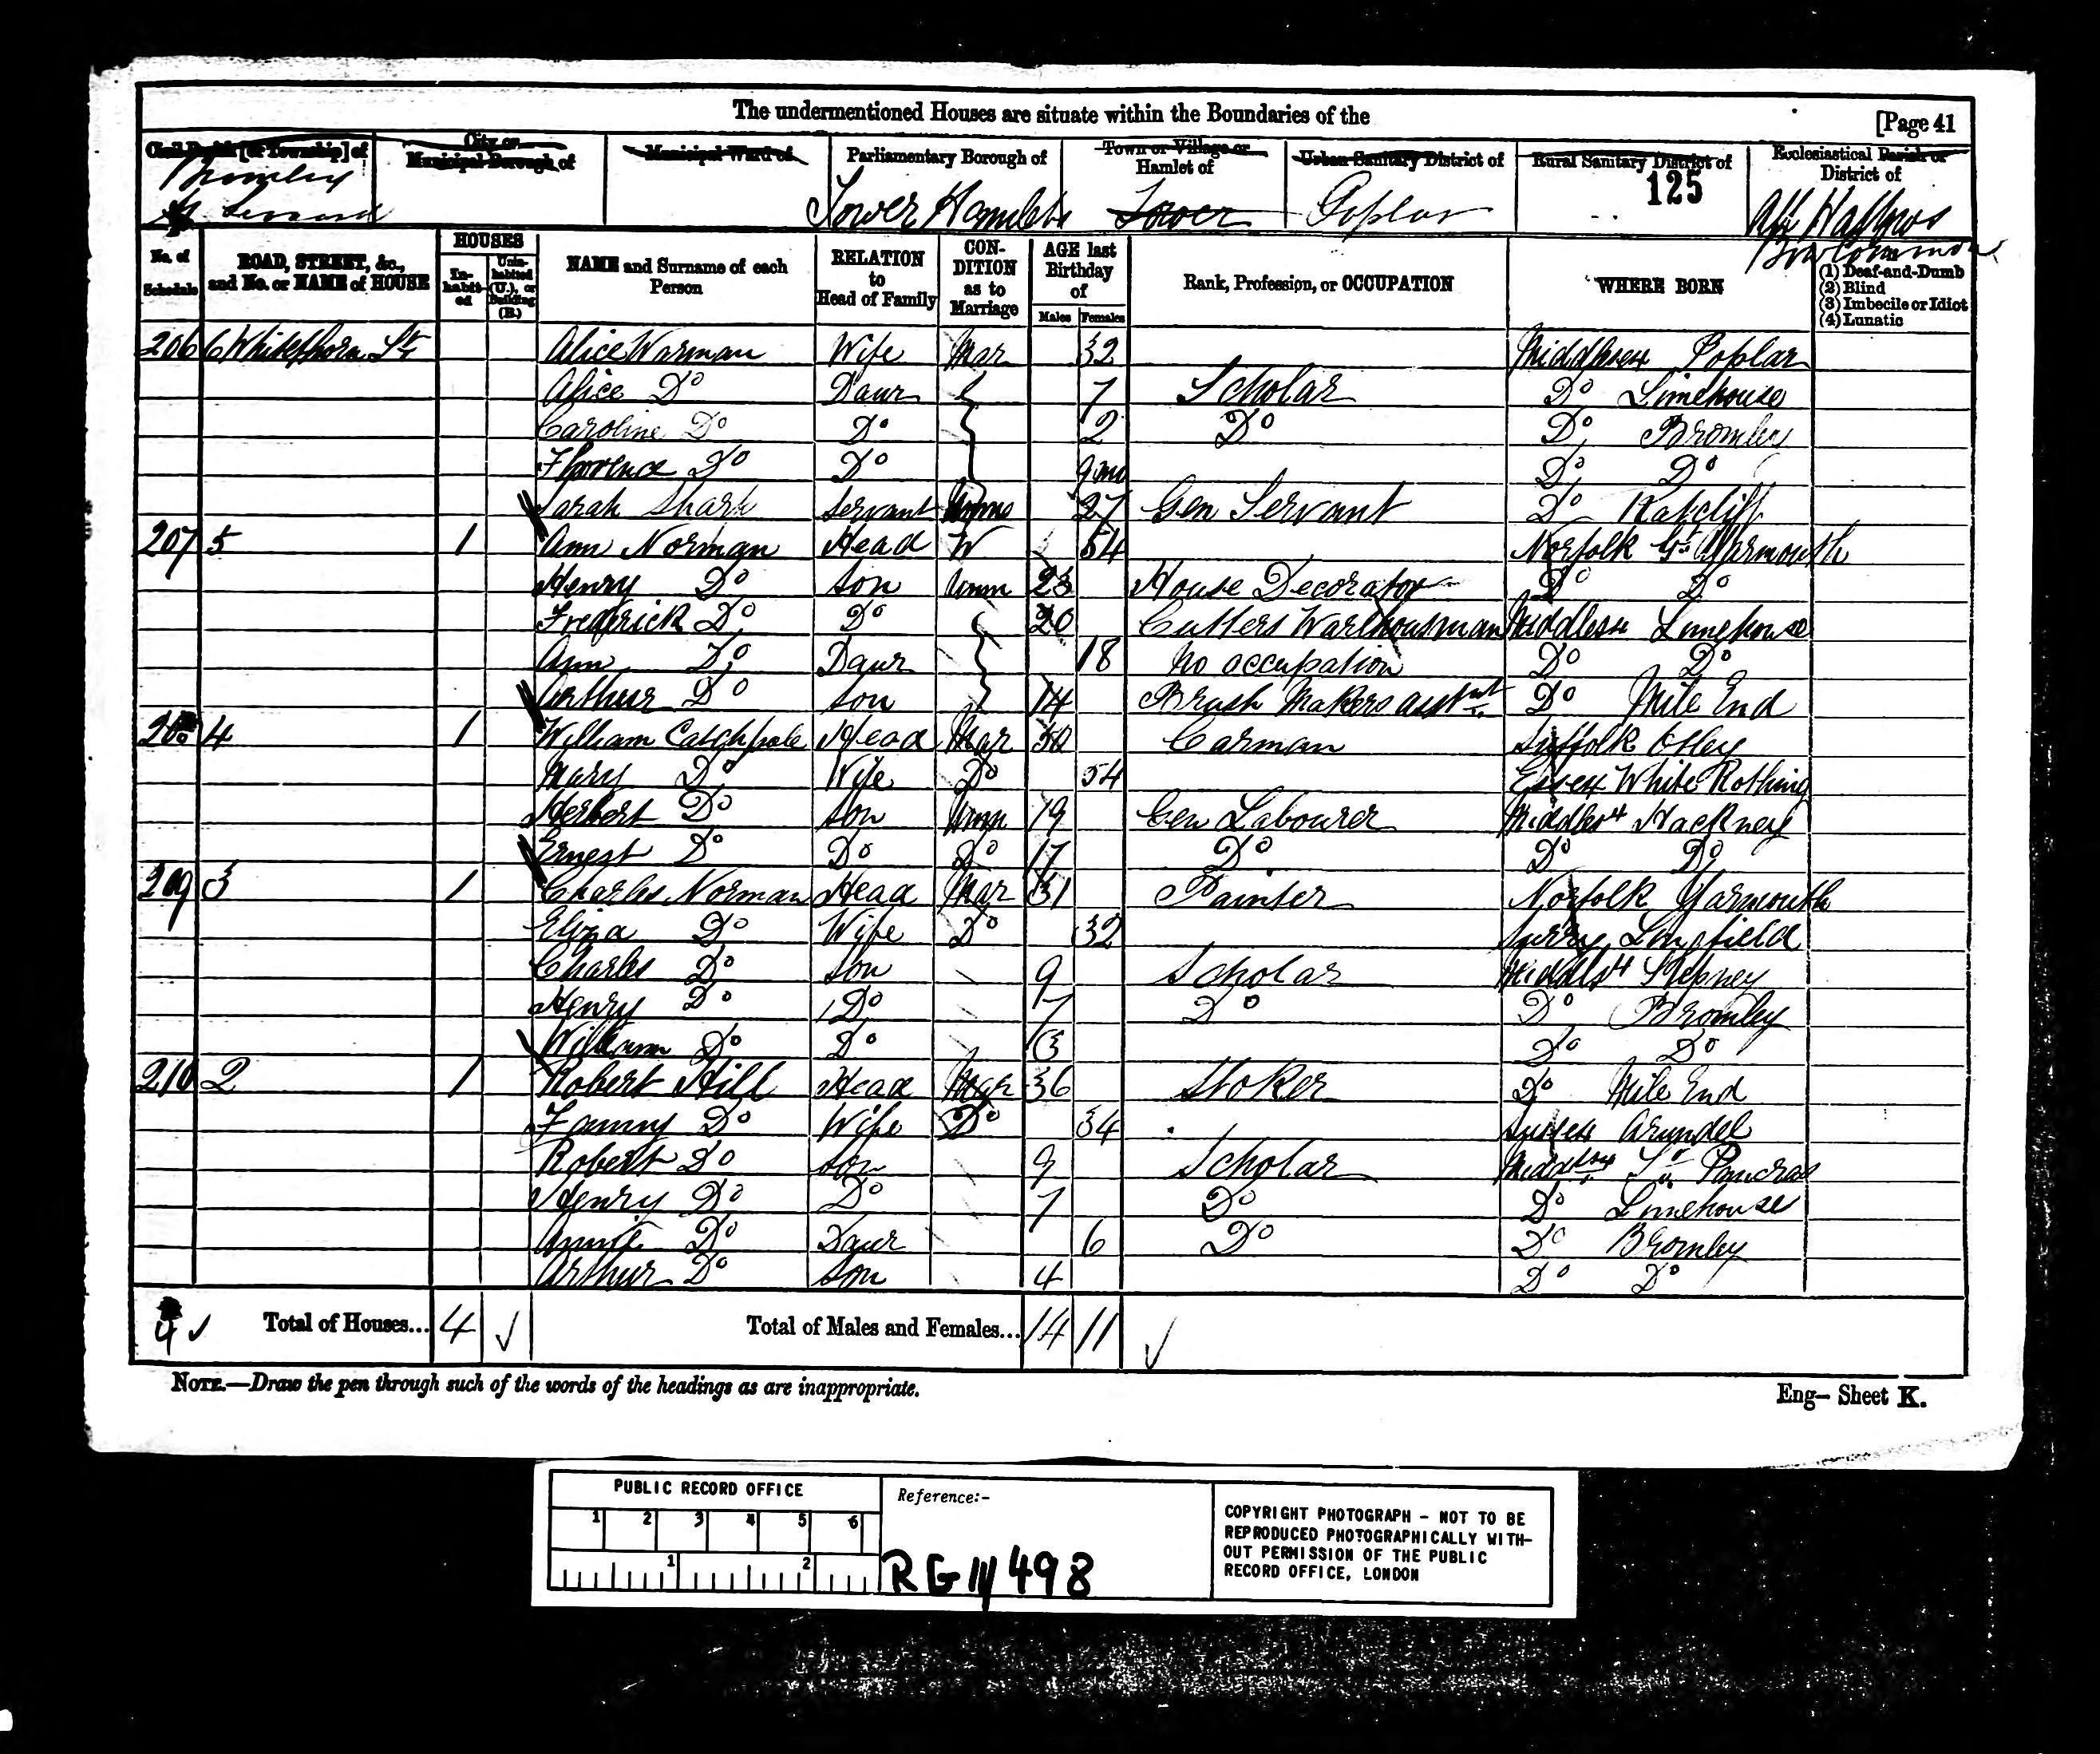 The undermentioned Houses are situate within the Boundaries of the
[Page 41
Civil Parish [or Township] of
City or Municipal Borough of
Municipal Ward of
Parliamentary Borough of
Town or Village or Hamlet of
Urban Sanitary District of
Rural Sanitary District of
Ecclesiastical Parish or District of
Bromley St Leonard
Tower Hamlets
Tower
Poplar
125
All Hallows Bow Common
No. of Schedule
ROAD, STREET, &c., and No. or NAME of HOUSE
HOUSES
In-habit-ed
Unin-habited (U.), or Building (B.)
NAME and Surname of each Person
RELATION to Head of Family
CON-DITION as to Marriage
AGE last Birthday of
Males Females
Rank, Profession, or OCCUPATION
WHERE BORN
(1) Deaf-and-Dumb
(2) Blind
(3) Imbecile or Idiot
(4) Lunatic
206 6 Whitethorn St Alice Warman Wife Mar 32 Middlesex Poplar
Alice Do Daur 7 Scholar Do Limehouse
Caroline Do Do 2 Do Do Bromley
Florence Do Do 9 mo Do Do
Sarah Shark Servant Unm 27 Gen Servant Do Ratcliff
207 5 1 Ann Norman Head W 54 Norfolk Gt Yarmouth
Henry Do Son Unm 23 House Decorator Do Do
Fredrick Do Do 20 Cutlers Warehousman Middlesex Limehouse
Ann Do Daur 18 No occupation Do Do
Arthur Do Son 14 Brush Makers asstnt Do Mile End
208 4 1 William Catchpole Head Mar 50 Carman Suffolk Otley
Mary Do Wife Do 54 Essex White Rothing
Herbert Do Son Unm 19 Gen Labourer Middlesex Hackney
Ernest Do Do Do 17 Do Do Do
209 3 1 Charles Norman Head Mar 31 Painter Norfolk Yarmouth
Eliza Do Wife Do 32 Surrey Lingfield
Charles Do Son 9 Scholar Middlsx Stepney
Henry Do Do 7 Do Do Bromley
William Do Do 3 Do Do
210 2 1 Robert Hill Head Mar 36 Stoker Do Mile End
Fanny Do Wife Do 34 Sussex Arundel
Robert Do Son 9 Scholar Middlesex St Pancras
Henry Do Do 7 Do Do Limehouse
Annie Do Daur 6 Do Do Bromley
Arthur Do Son 4 Do Do
4 Total of Houses... 4 Total of Males and Females... 14 11
NOTE.—Draw the pen through such of the words of the headings as are inappropriate.
Eng— Sheet K.
PUBLIC RECORD OFFICE
1 2 3 4 5 6
1 2
Reference:-
RG 11/498
COPYRIGHT PHOTOGRAPH - NOT TO BE
REPRODUCED PHOTOGRAPHICALLY WITH-
OUT PERMISSION OF THE PUBLIC
RECORD OFFICE, LONDON